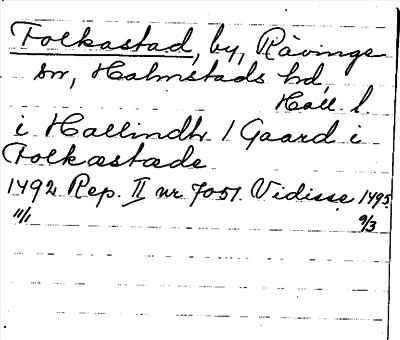 Folkastad, by, Rävinge
sn, Halmstads hd,
Hall. l.
i Hallindh 1 Gaard i
Folkæstæde
1492 Rep. II nr 7051. Vidisse 1495
11/1 9/3